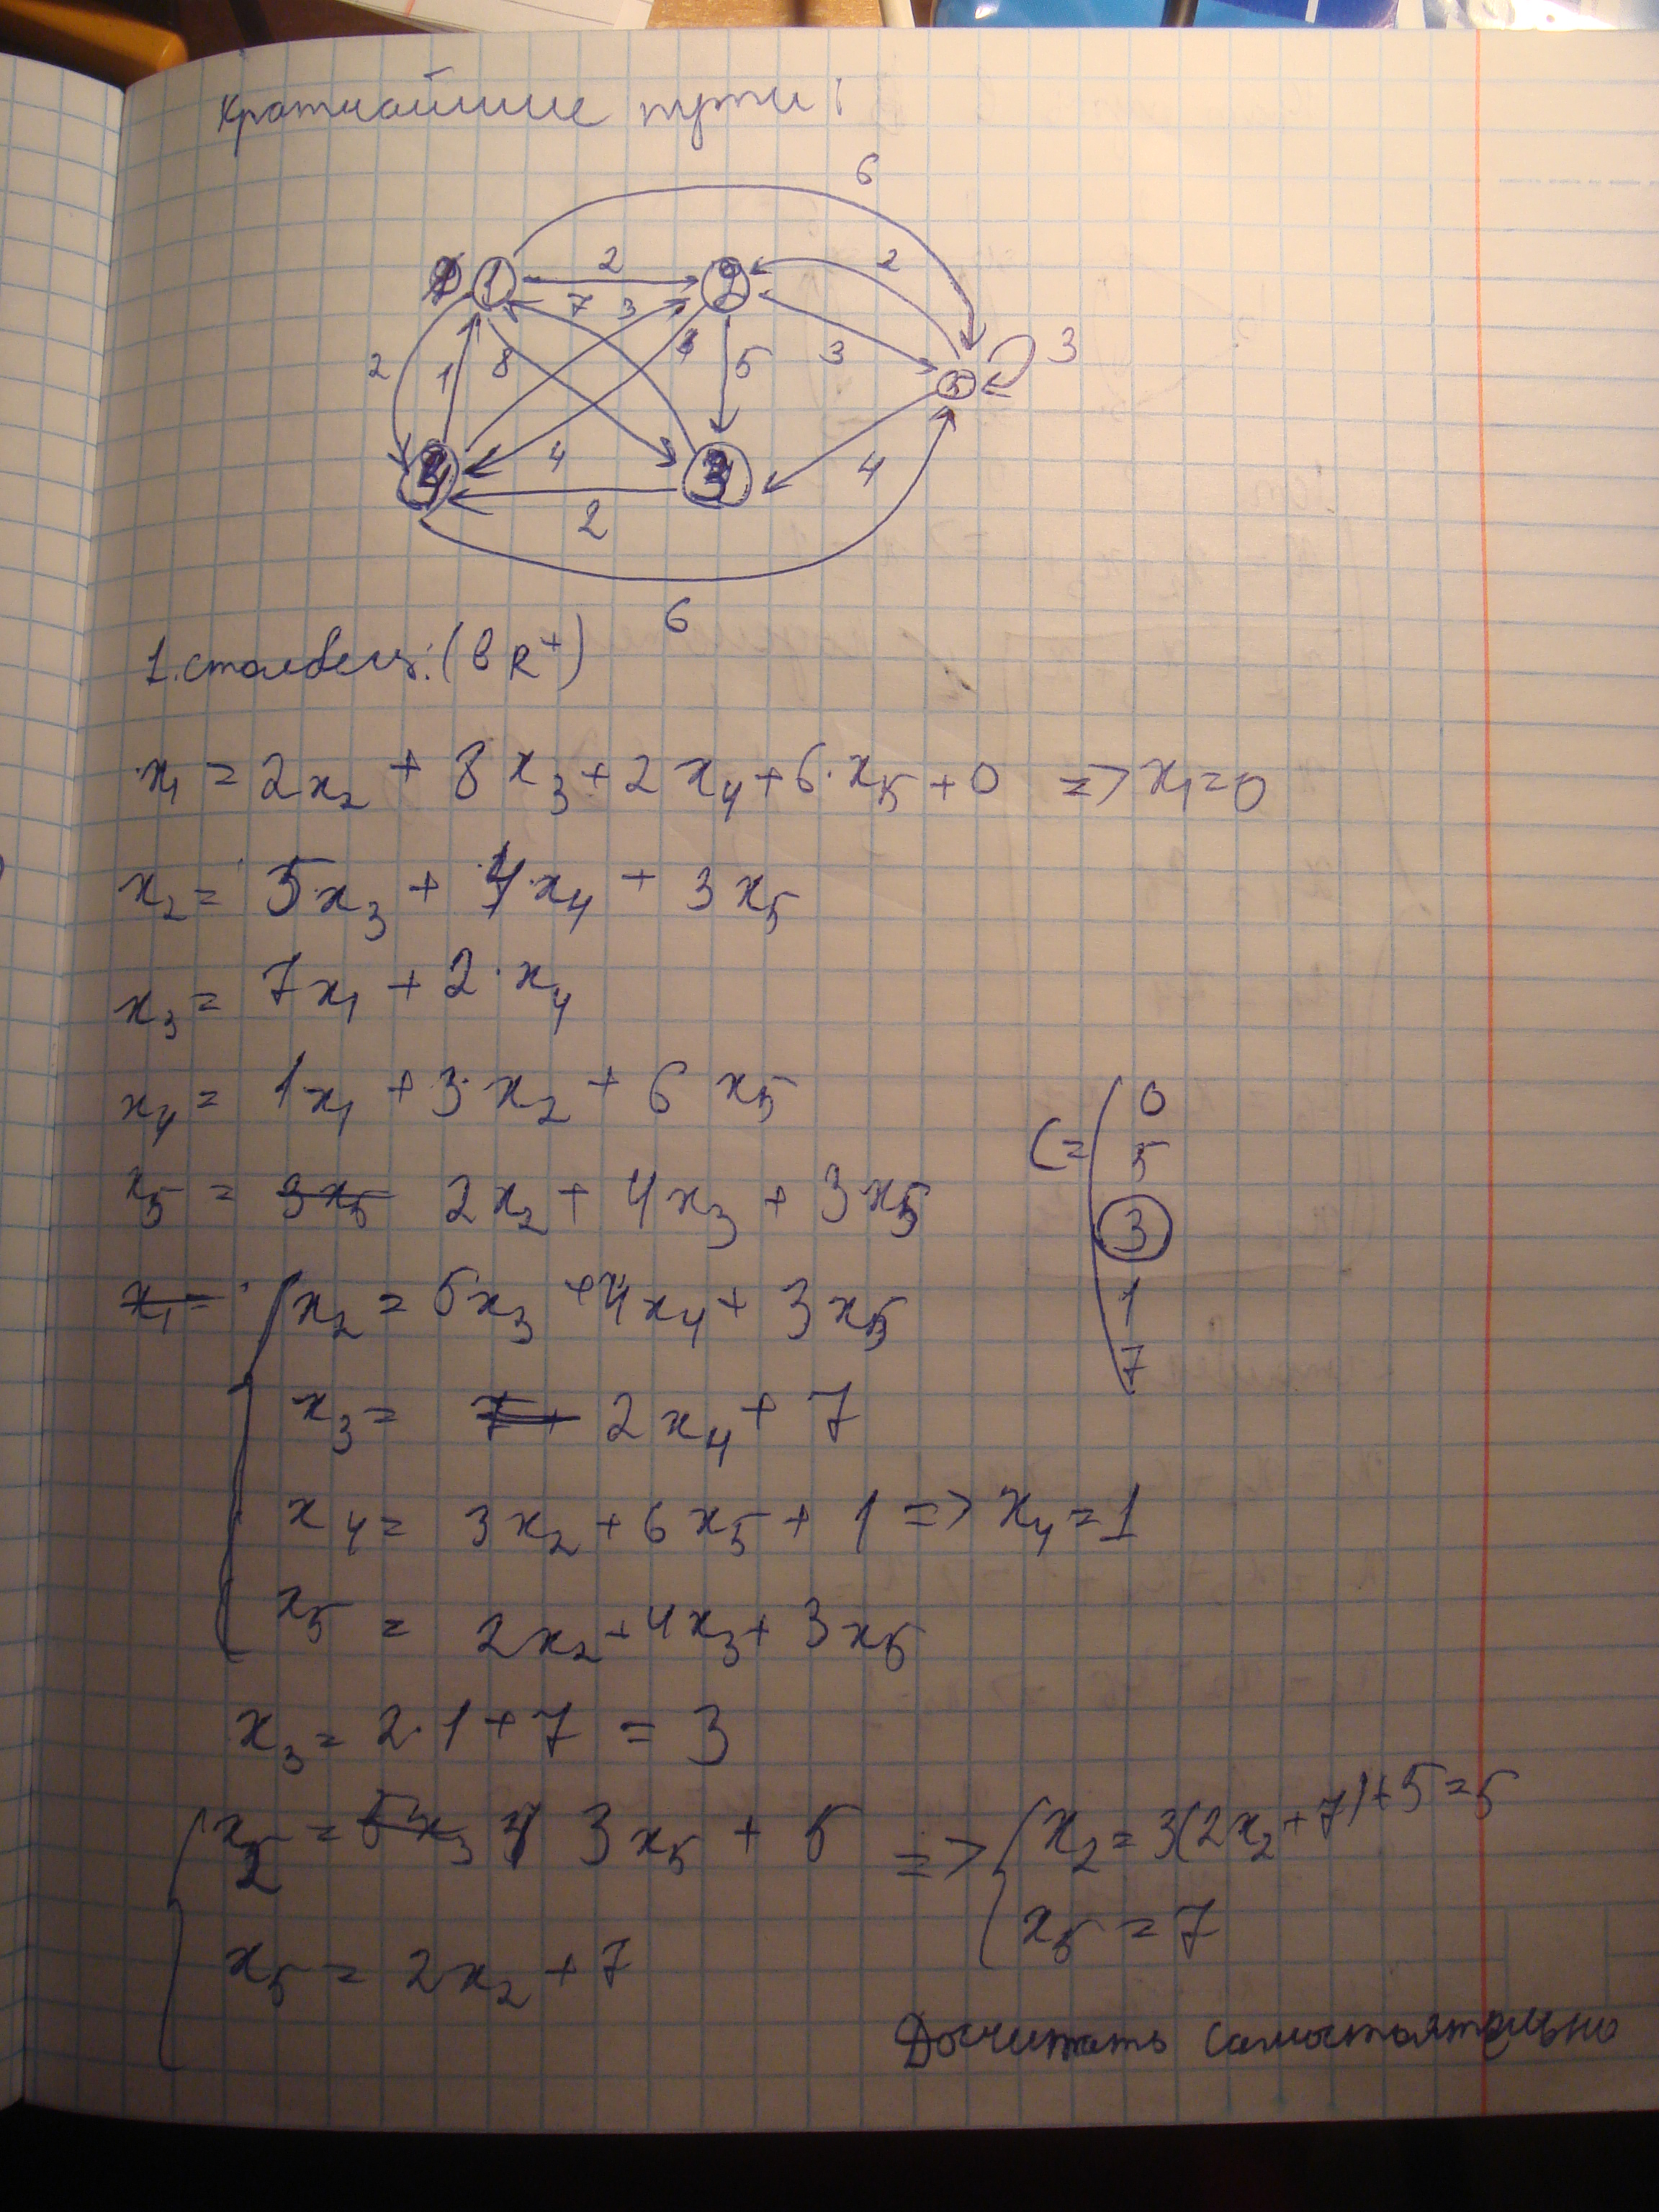 Кратчайшие пути:
6
1 2 2 2
7 3
2 1 8 5 3 5 3
4 4 3 4
2
6
1. столбец: (в R⁺)
x₁ = 2x₂ + 8x₃ + 2x₄ + 6·x₅ + 0 => x₁=0
x₂ = 5·x₃ + 4·x₄ + 3x₅
x₃ = 7x₁ + 2·x₄
x₄ = 1·x₁ + 3·x₂ + 6x₅
x₅ = 3x₅ 2x₂ + 4x₃ + 3x₅
C= ( 0
5
3
1
7
x₁= { x₂ = 5x₃ + 4x₄ + 3x₅
x₃ = 7+ 2x₄ + 7
x₄ = 3x₂ + 6x₅ + 1 => x₄ = 1
x₅ = 2x₂ + 4x₃ + 3x₅
x₃ = 2·1 + 7 = 3
{ x₂ = 5x₃ 3x₅ + 5 => { x₂ = 3(2x₂+7)+5=5
x₅ = 2x₂ + 7 x₅ = 7
Досчитать самостоятельно